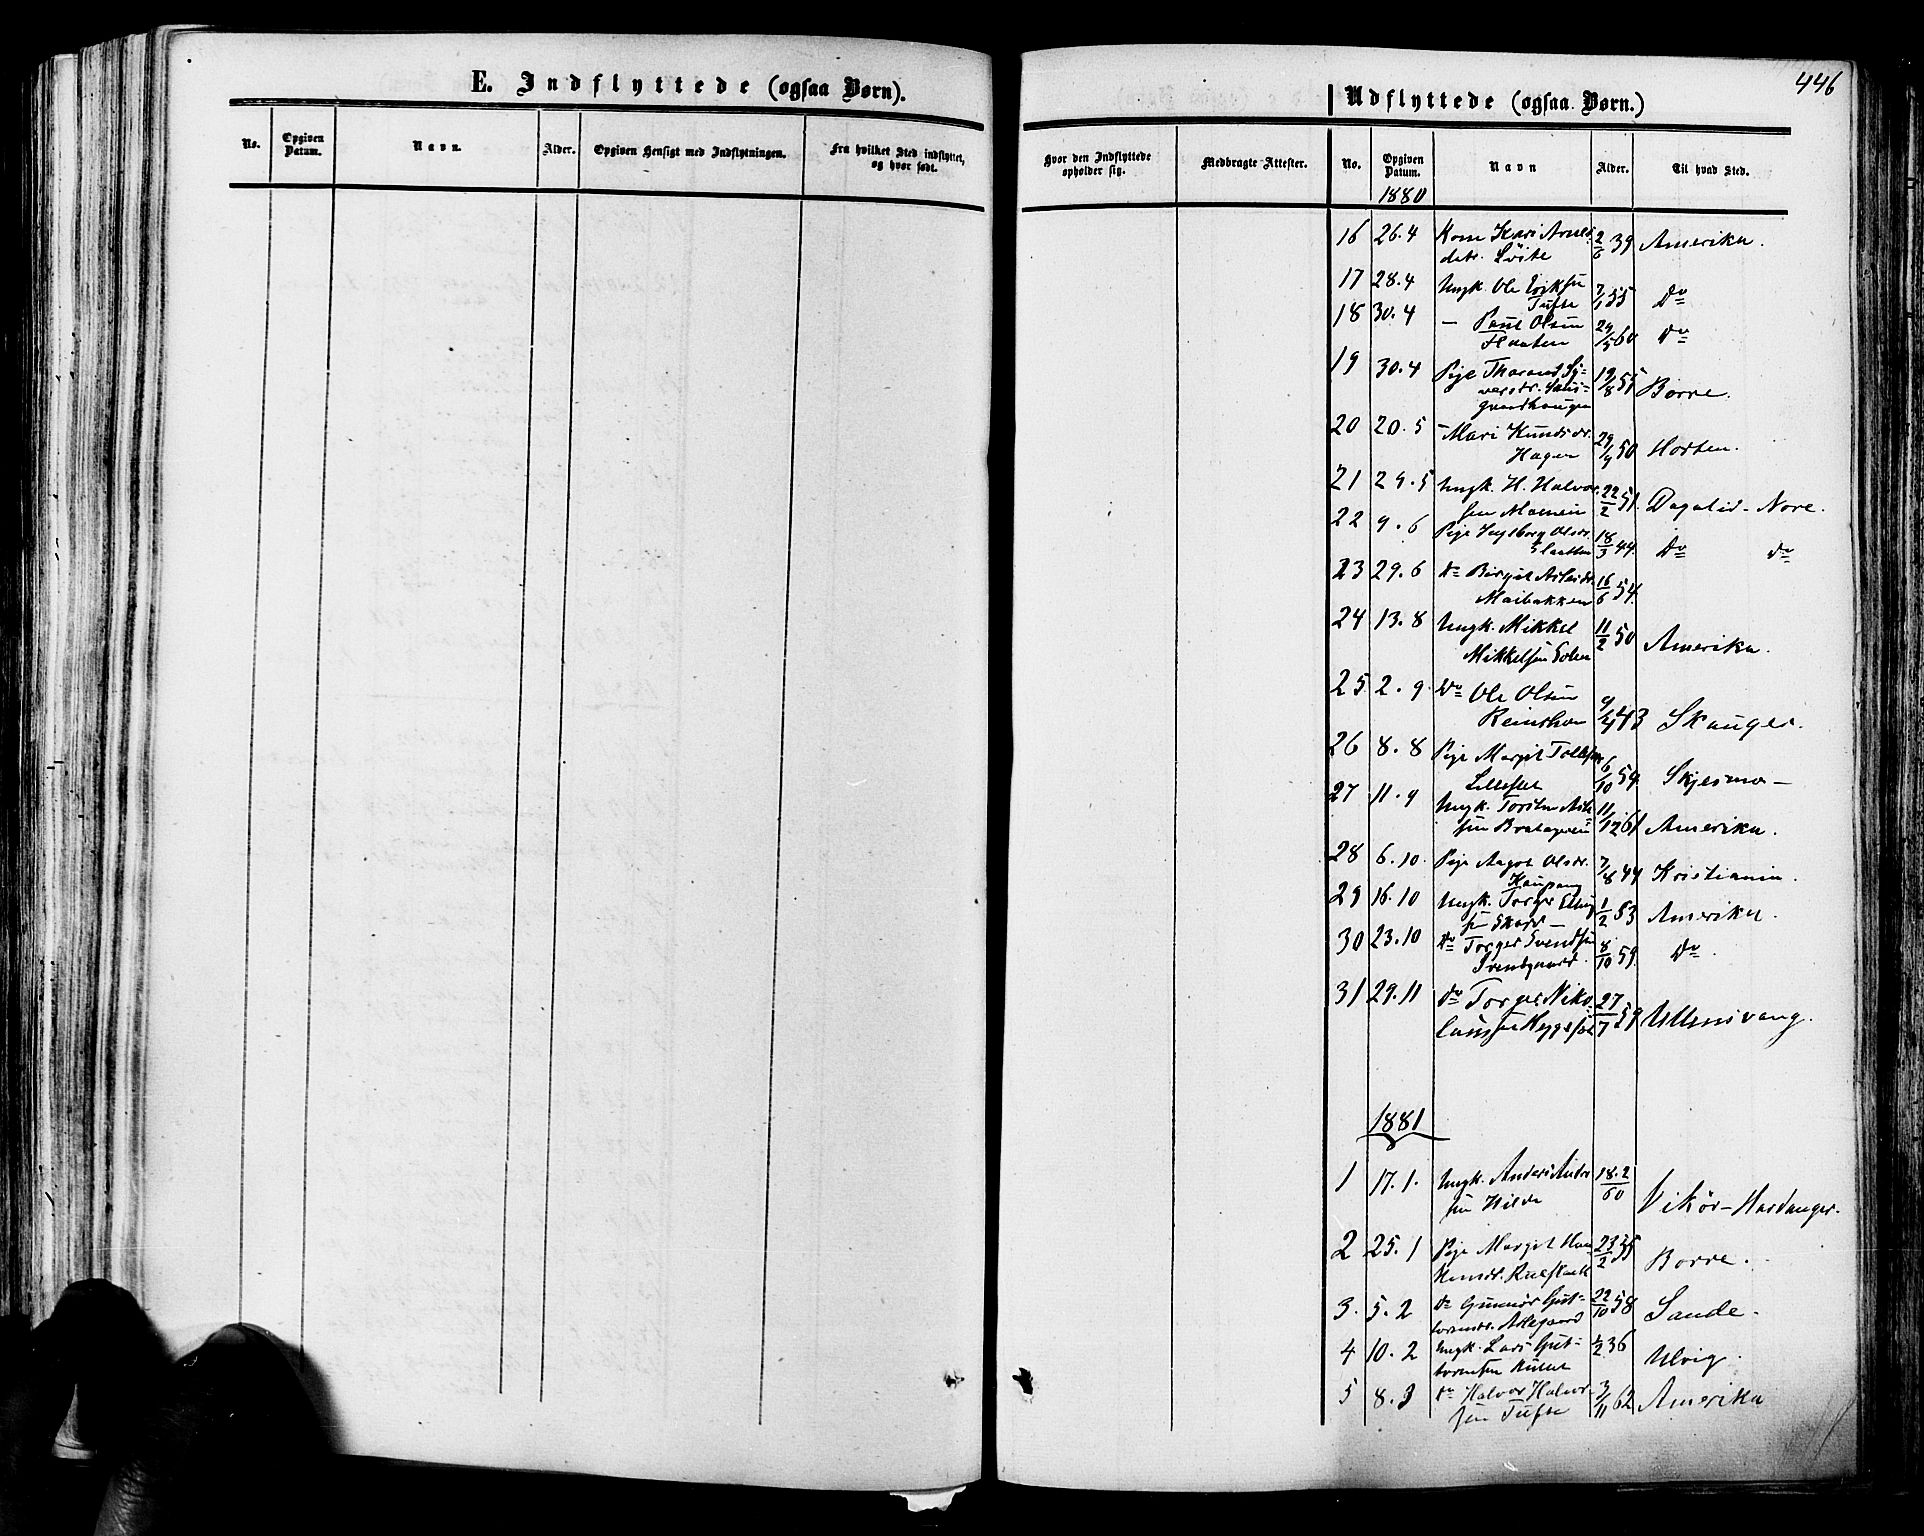 446
E. Indflyttede (ogsaa Børn).
No. Opgiven Datum. Navn. Alder. Opgiven Hensigt med Indflytningen. Fra hvilket Sted indflyttet, og hvor født.
Udflyttede (ogsaa Børn.)
Hvor den Indflyttede opholder sig. Medbragte Attester. No. Opgiven Datum. Navn Alder. Til hvad Sted.
1880
16 26.4 Kone Kari Arnes- 2/6 39 Amerika.
datr.
17 28.4 Ungk. Ole Eriksen 7/1 55 Do
Tufte
18 30.4 — Paul Olsen 29/5 60 do
Flaaten
19 30.4 Pige Sy- 19/8 55 Borre.
versdr.
20 20.5 — Mari Knudsdr. 29/9 50 Horten.
Hagen
21 29.5 Ungk. H. Halvor- 22/2 51. Dagalid - Nore.
sen Moen
22 9.6 Pige Ingeborg Olsdr. 18/3 44. Do do
23 29.6 do Birgit 16/6 54.
Maibakken
24 13.8 Ungk. Mikkel 11/2 50 Amerika.
Mikkelsen
25 2.9. Do Ole Olsen 9/4 43 Skauger.
26 8.8 Pige Margit 6/10 54. —
27 11.9 Ungk. 11/12 61 Amerika.
sen
28 6.10. Pige Aagot Olsdr. 7/8 44 Kristiania.
Kaupang
29 16.10 Ungk. Torger 1/2 53 Amerika.
sen Skard —
30 23.10 do Torger Svendsen 8/10 59. Do.
31 29.11 do Torger Niko- 27/7 59 Ullensvang.
laisen
1881
1 17.1. Ungk. Anders 18.2/60 Vikør - Hardanger.
sen Hilde
2 25.1 Pige Margit 23/2 55 Borre.
3. 5.2 do Gunnor Gut- 22/10 58 Sande.
tormsdr.
4 10.2 Ungk. Lars Gut- 1/2 36 Ulvig.
tormsen
5 8.3 do Halvor Halvor- 3/11 62 Amerika
sen Tufte